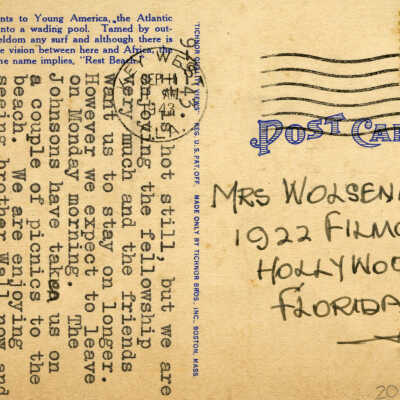 nts to Young America, the Atlantic
nto a wading pool. Tamed by out-
eldom any surf and although there is
e vision between here and Africa, the
ne name implies, "Rest Beach."
is hot still, but we are
enjoying the fellowship
very much and the friends
want us to stay on longer.
However we expect to leave
on Monday morning. The
Johnsons have taken us on
a couple of picnics to the
beach. We are enjoying
seeing brother Wall now and
KEY WEST
SEP 11
AM
1943
FLA.
TICHNOR QUALITY VIEWS REG. U. S. PAT. OFF. MADE ONLY BY TICHNOR BROS., INC., BOSTON, MASS.
POST CA
MRS WOLSEN
1922 FILMO
HOLLYWOO
FLORIDA
20